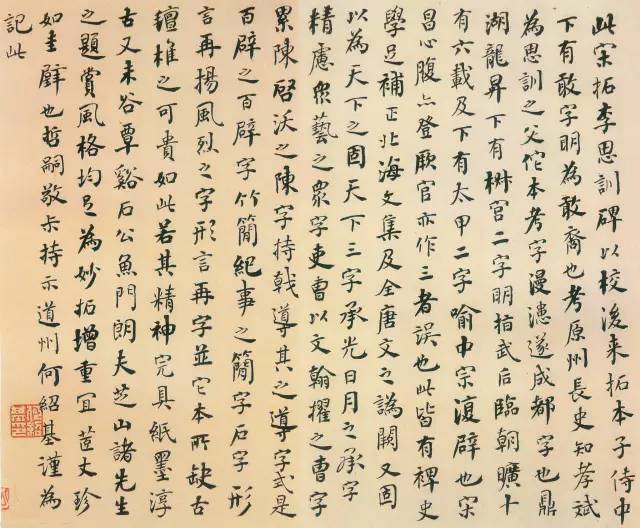 此宋拓李思訓碑以校後来拓本子侍中
下有敢字明為敢裔也考原州長史知孝斌
為思訓之父佗本考字漫漶遂成都字也鼎
湖龍昇下有椒宫二字明指武后臨朝曠十
有六載及下有太甲二字喻中宗復辟也宋
昌心腹亦登厥官亦作三者誤也此皆有裨史
學足補正北海文集及全唐文之譌闕又固
以為天下之固天下三字承光日月之承字
精慮眾藝之眾字吏曹以文翰擢之曹字
累陳啓沃之陳字持戟導其之導字式是
百辟之百辟字竹簡紀事之簡字石字形
言再揚風烈之字形言再字並它本所缺古
氊椎之可貴如此若其精神完具紙墨淳
古又未谷覃谿石公魚門朗夫芝山諸先生
之題賞風格均足為妙拓增重宜莖丈珍
如圭璧也哲嗣敬夫持示道州何紹基謹為
記此